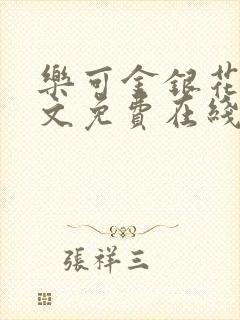 樂可金銀花
文免費在綫
張祥三